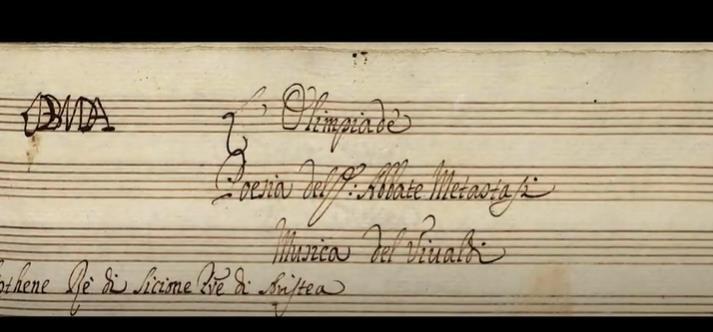 L'Olimpiade
Poesia del Sr: Abbate Metastasi
Musica del Viualdi
othene Rè di Sicione Pre di Aristea